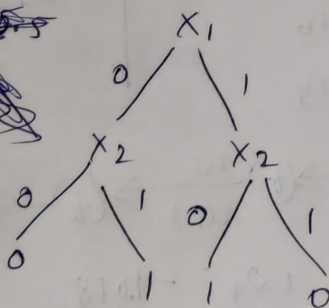 X1
0 1
X2 X2
0 1 0 1
0 1 1 0